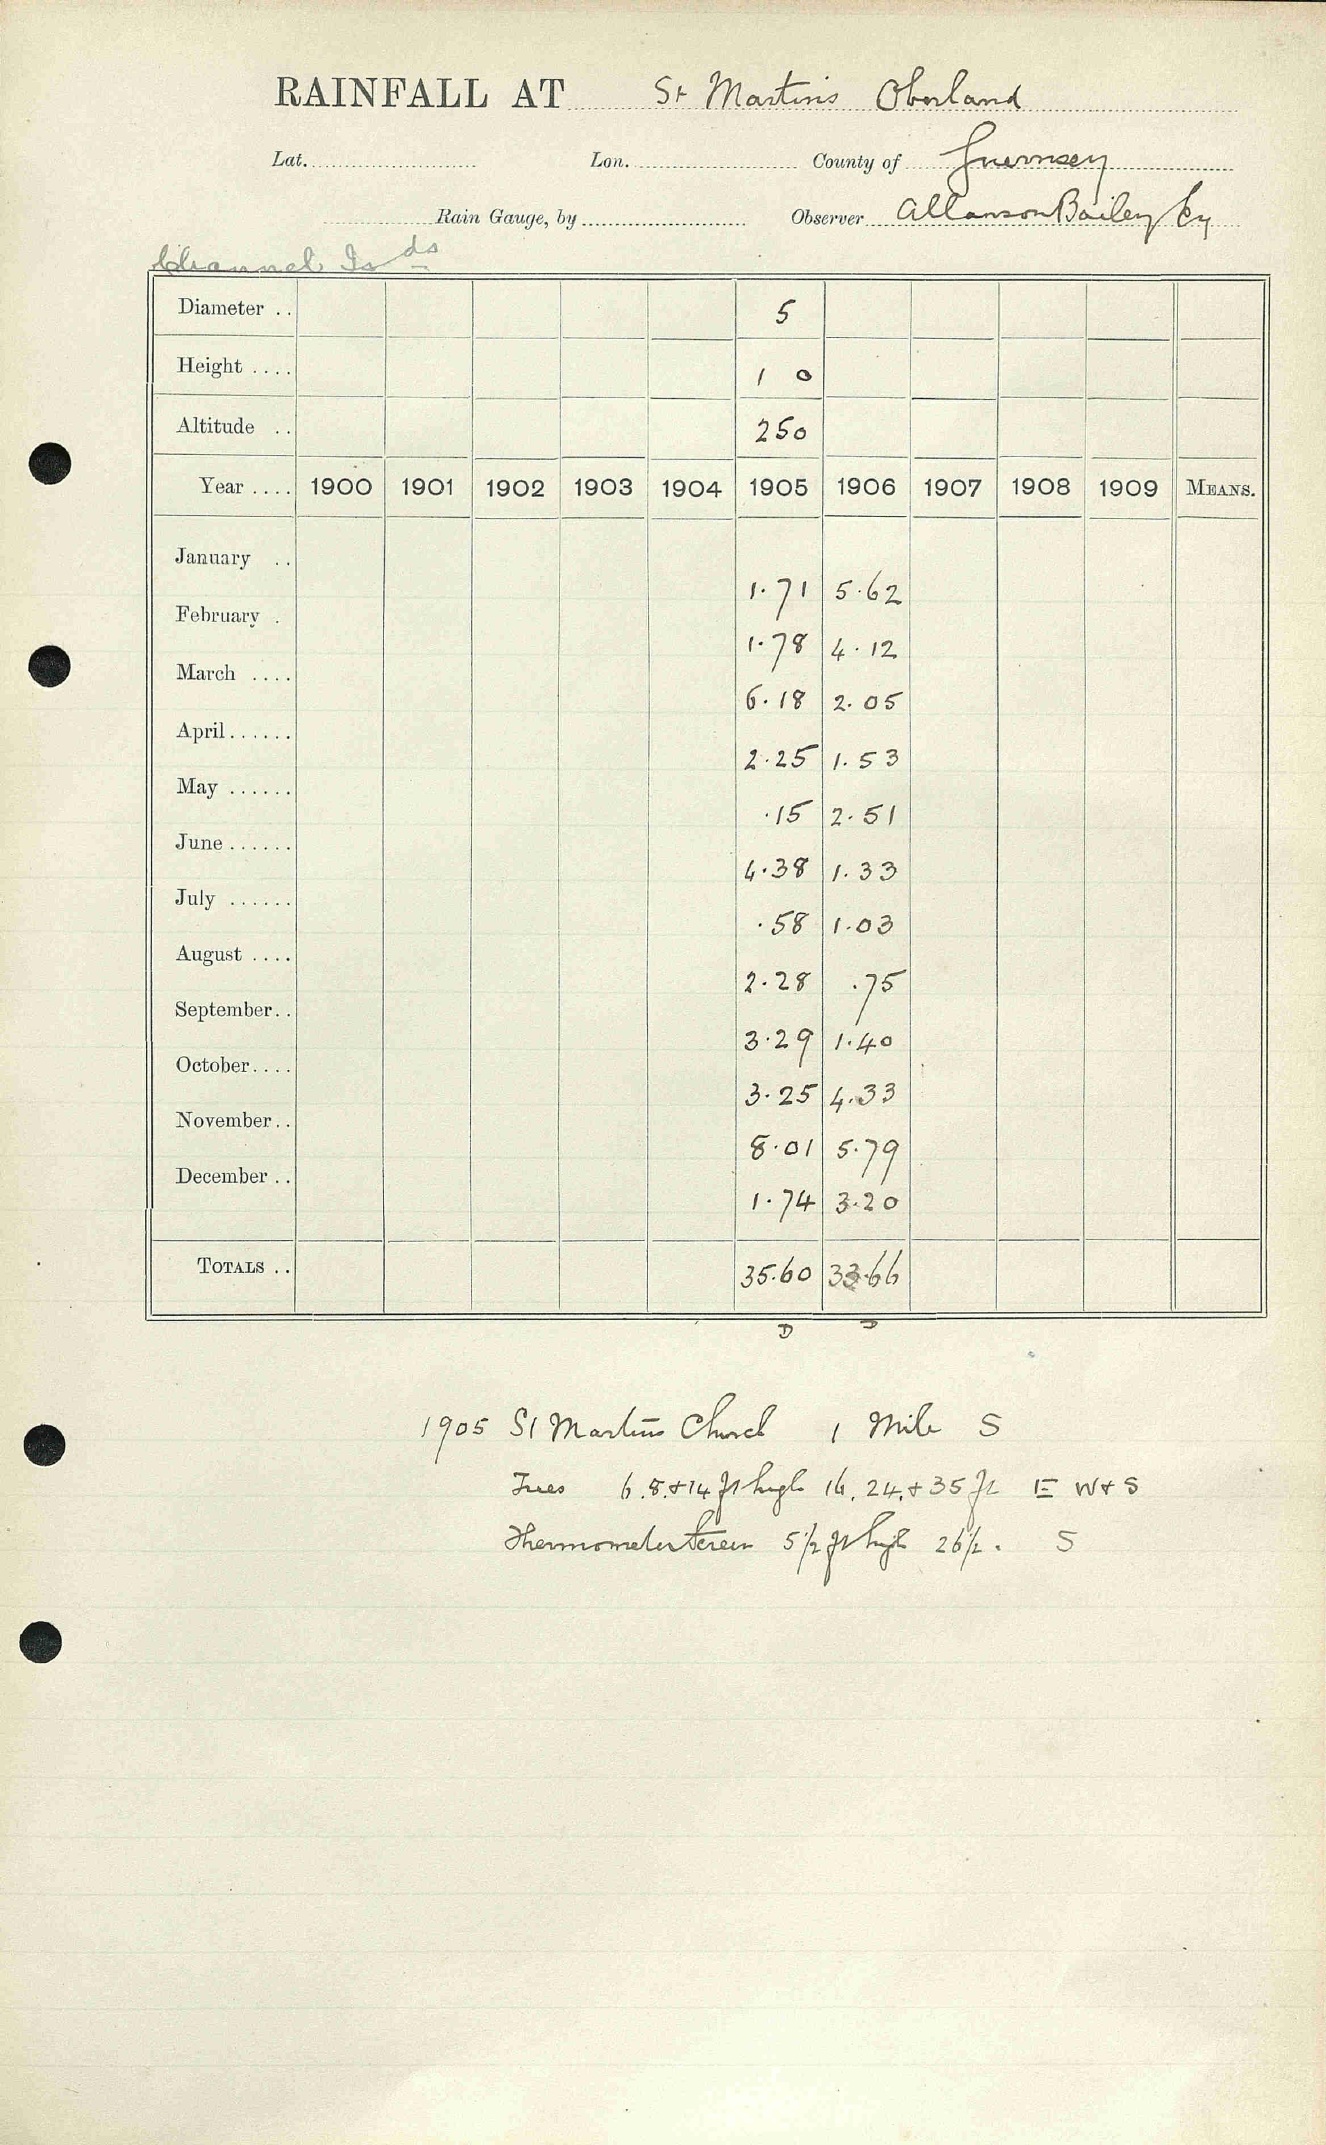 RAINFALL AT St Martins Oberland
Lat. Lon. County of Guernsey
Rain Gauge, by Observer Allanson Bailey Esq
Channel Is ds
Diameter .. 5
Height .... 1 0
Altitude .. 250
Year .... 1900 1901 1902 1903 1904 1905 1906 1907 1908 1909 MEANS.
January .. 1.71 5.62
February . 1.78 4.12
March .... 6.18 2.05
April...... 2.25 1.53
May ...... .15 2.51
June...... 4.38 1.33
July ...... .58 1.03
August .... 2.28 .75
September.. 3.29 1.40
October.... 3.25 4.33
November.. 8.01 5.79
December.. 1.74 3.20
TOTALS .. 35.60 33.66
D D
1905 St Martins Church 1 Mile S
Trees 6.8.+14 ft high 16, 24,+35 ft E W+S
Thermometer Screen 5 1/2 ft high 26 1/2 . S